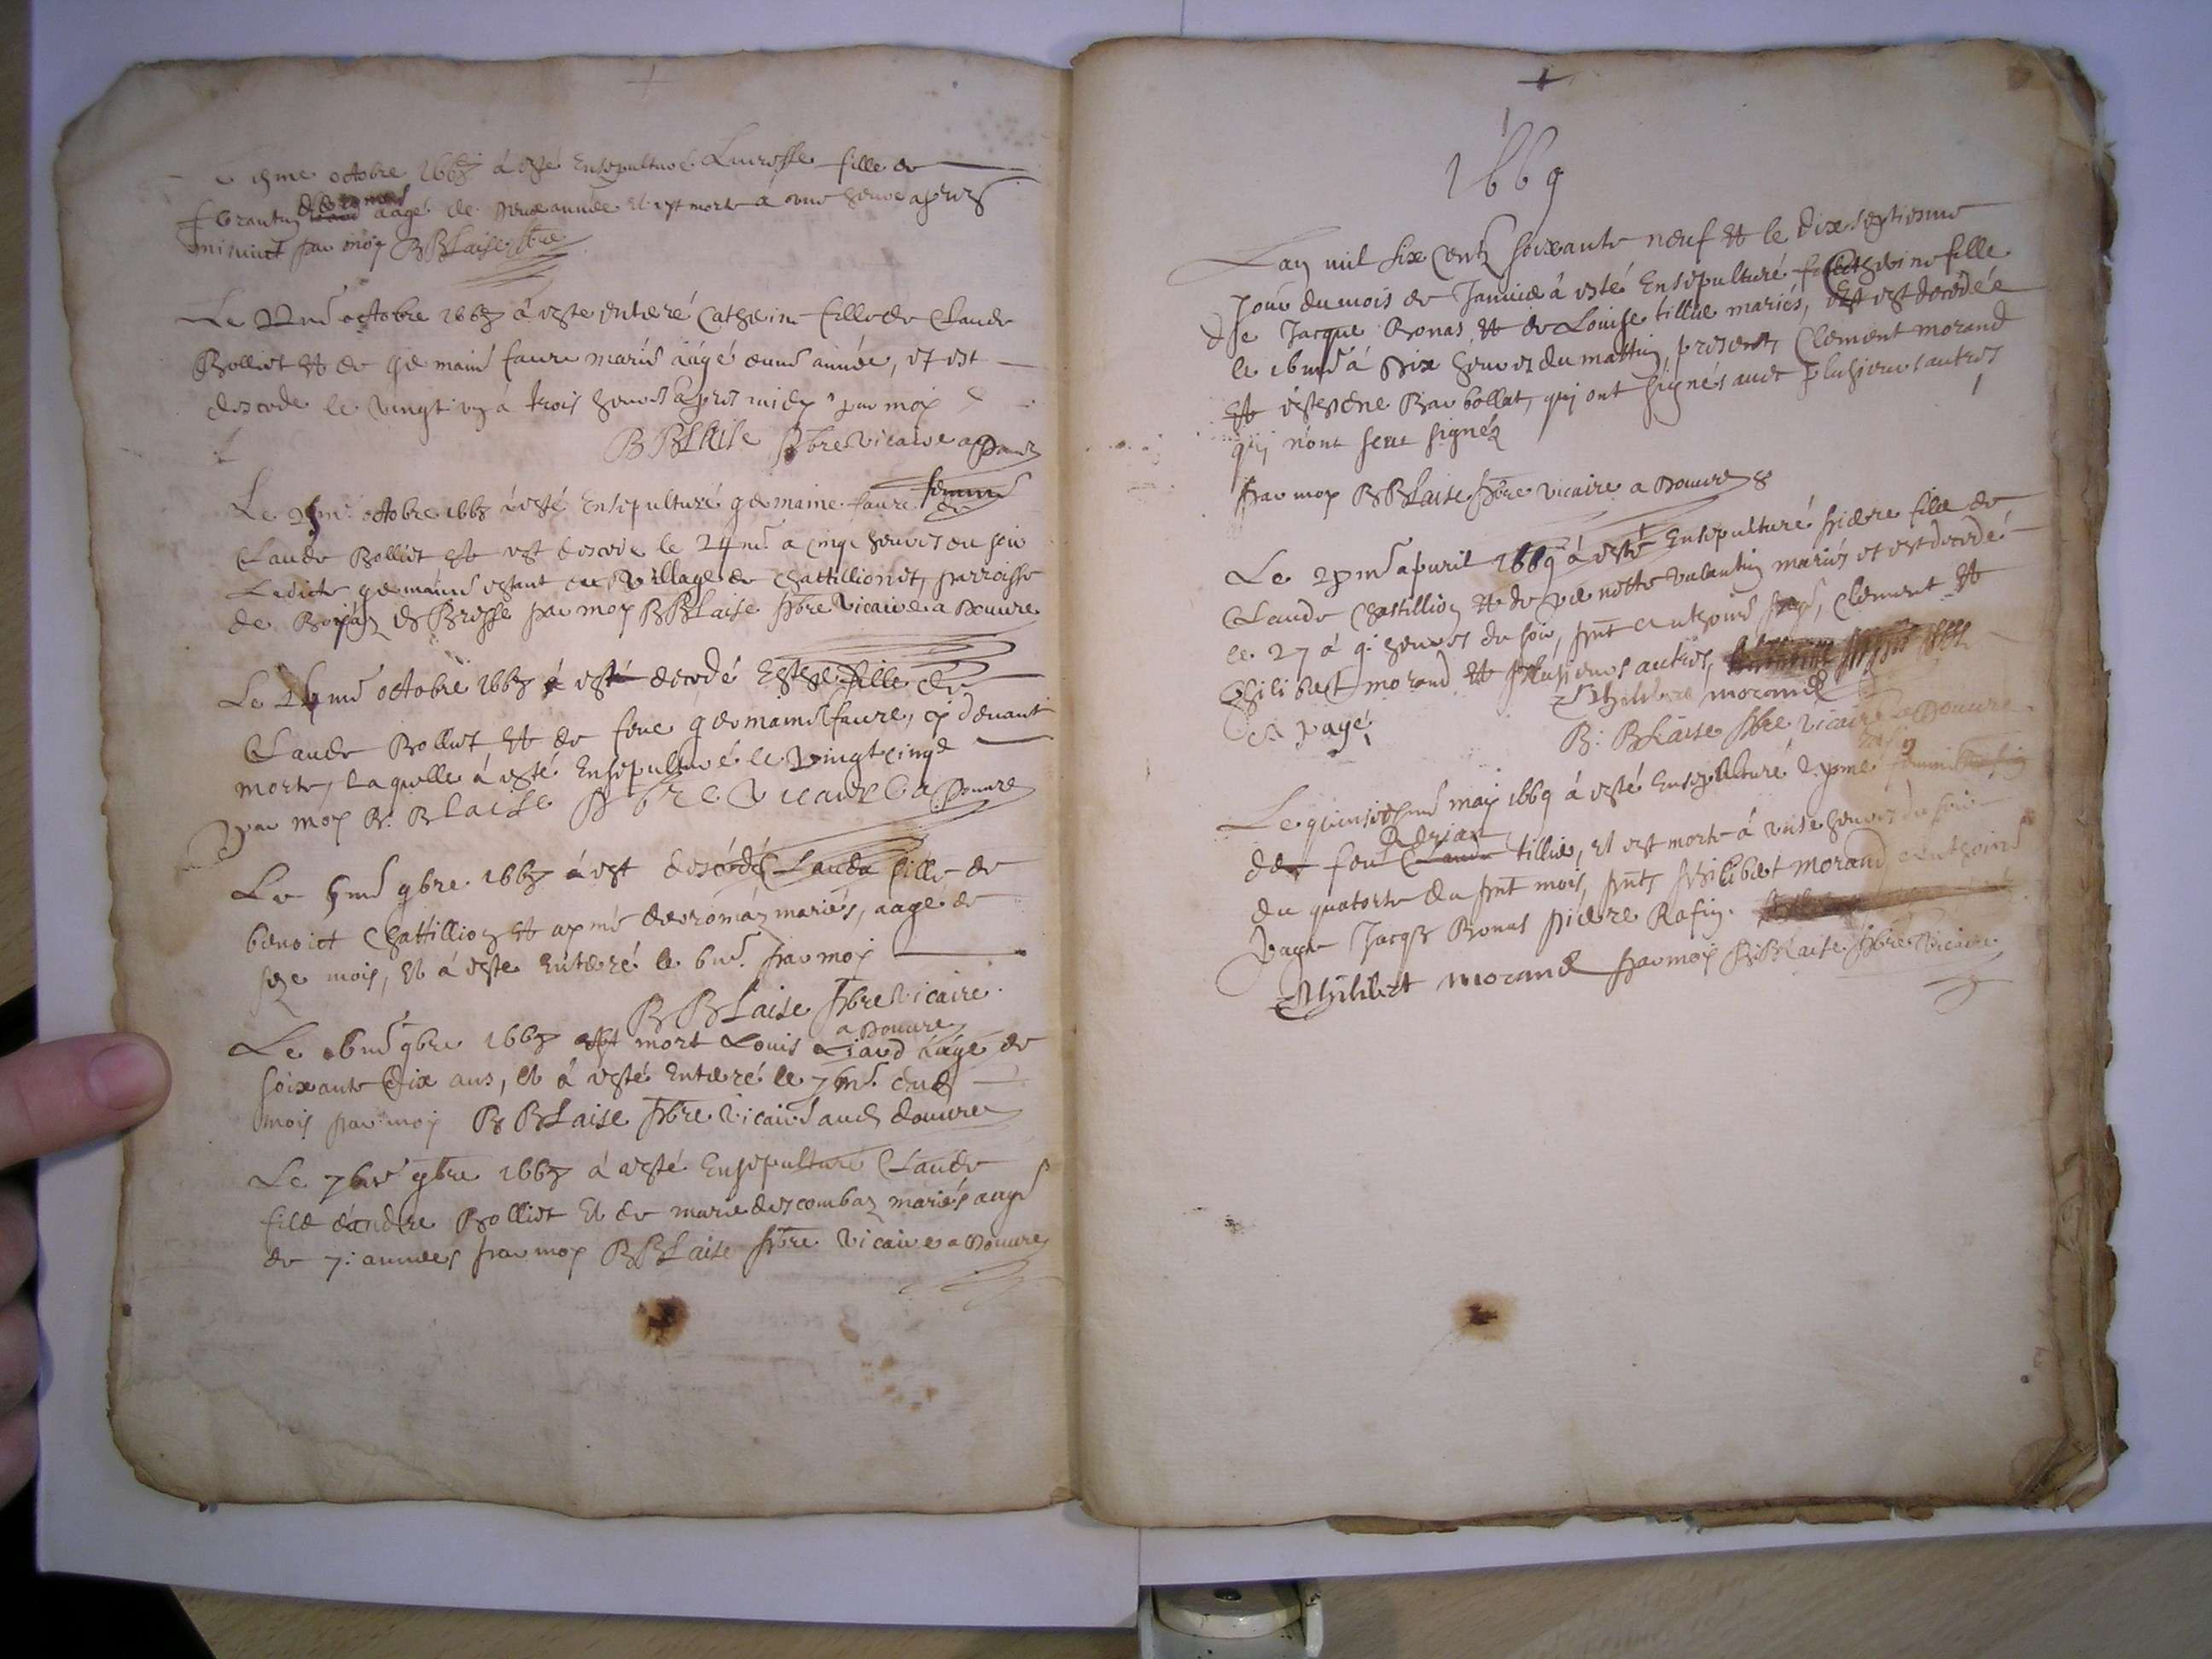 octobre 1668 à esté Ensepulturé fille de
aagé de deux année Et est morte a une heure apres
minuict par moy B BLaise pbre
Le 22me octobre 1668 à este enterré Catherine fille de Claude
Bolliet et de germaine faure mariés aagé d'une année, et est
descede le vingt un a trois heures apres midy par moy
B BLaise pbre Vicaire a Douvre
Le 25me octobre 1668 à esté Ensepulturé germaine faure femme de
Claude Bolliet Et est descede le 24me a cinqz heures du soir
Ladicte germaine estant au Village de Chattillionet, parroisse
de en Bresse par moy B BLaise pbre Vicaire a Douvre
Le 24me octobre 1668 à esté decedé fille de
Claude Bolliet et de feue germaine faure, cy devant
morte, laquelle à esté Ensepulturé le Vingt cinqe
par moy B. BLaise pbre Vicaire a Douvre
Le 5me 9bre 1668 à est descedé Claude fille de
benoict Chattillion et apmé mariés, aagé de
mois, Et à este enterré le 6me par moy
B BLaise pbre Vicaire
a Douvre
Le 16me 9bre 1668 est mort Louis Liaud aagé de
soixante dix ans, et à esté Enterré le dud
mois par moy B BLaise pbre Vicaire aud douvre
Le 9bre 1668 à esté Ensepulturé Claude
filz d'andre Bolliet Et de marie descombaz mariés aagé
de 7: annees par moy B BLaise pbre Vicaire a Douvre
1669
Lan mil six Centz soixante neuf et le dix septiesme
Jour du mois de Janvier à esté Ensepulturé Catherine fille
de Jacque Bonas et de Louise tillier mariés, est decedée
le 16me à Dix heures du mattin, presents Clement morand
et estiene Barbollat, qui ont signés avec plusieurs autres
qui n'ont sceu signéz
par moy B BLaise pbre vicaire a Douvre
Le 28me apvril 1669 à esté Ensepulturé pierre filz de
Claude Chastillion et de pernette valantin mariés et est decedé
le 27 à 9: heures du soir, pnt Anthoine page, Clement et
Philibert morand et plusieurs autres,
Philibert morand
page
B: BLaise pbre vicaire a Douvre
Le quinsiesme may 1669 à esté Ensepulturé
de feu Adrian tillier, Et est morte à unse heures du soir
du quatorse du pnt mois, pnts Philibert morand, Anthoine
page Jacqz Bonas pierre Rafin.
Philibert morand par moy B BLaise pbre Vicaire